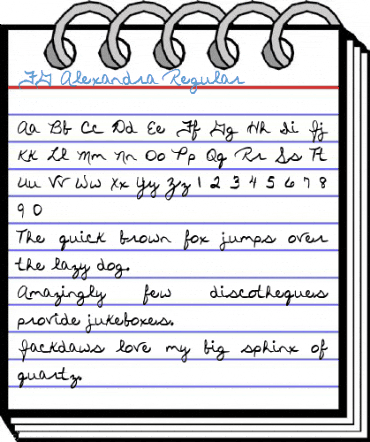 FG Alexandra Regular
Aa Bb Cc Dd Ee Ff Gg Hh Ii Jj
Kk Ll Mm Nn Oo Pp Qq Rr Ss Tt
Uu Vv Ww Xx Yy Zz 1 2 3 4 5 6 7 8
9 0
The quick brown fox jumps over
the lazy dog.
Amazingly few discotheques
provide jukeboxes.
Jackdaws love my big sphinx of
quartz.